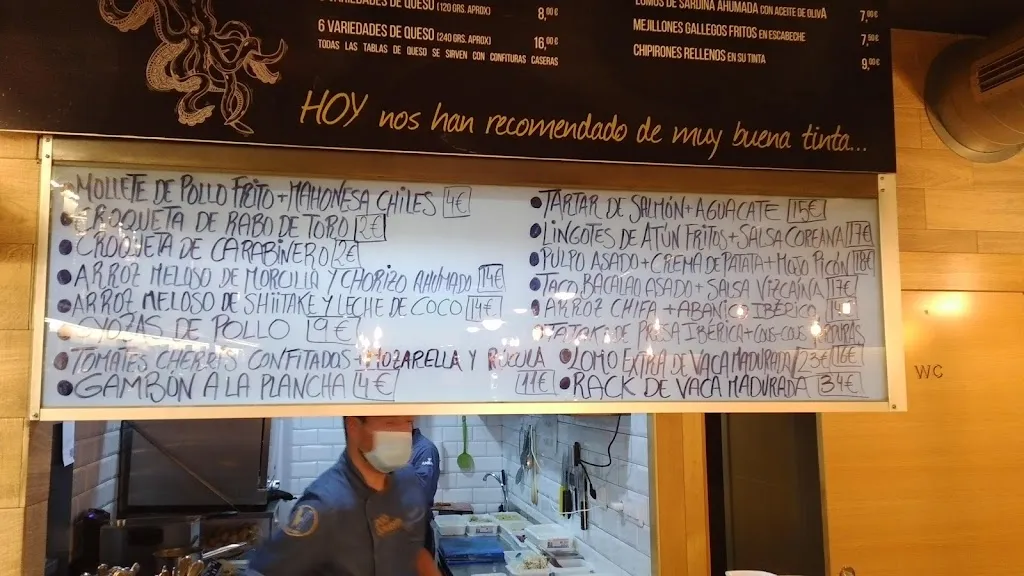 VARIEDADES DE QUESO (120 GRS. APROX) 8,00€
6 VARIEDADES DE QUESO (240 GRS. APROX) 16,00€
TODAS LAS TABLAS DE QUESO SE SIRVEN CON CONFITURAS CASERAS
LOMOS DE SARDINA AHUMADA CON ACEITE DE OLIVA 7,00€
MEJILLONES GALLEGOS FRITOS EN ESCABECHE 7,50€
CHIPIRONES RELLENOS EN SU TINTA 9,00€
HOY nos han recomendado de muy buena tinta...
MOLLETE DE POLLO FRITO + MAHONESA CHILES 4€
CROQUETA DE RABO DE TORO 2€
CROQUETA DE CARABINERO 2€
ARROZ MELOSO DE MORCILLA Y CHORIZO AHUMADO 14€
ARROZ MELOSO DE SHIITAKE Y LECHE DE COCO 14€
GYOZAS DE POLLO 9€
TOMATES CHERRYS CONFITADOS + MOZARELLA Y RÚCULA 11€
GAMBÓN A LA PLANCHA 4€
TARTAR DE SALMÓN + AGUACATE 15€
LINGOTES DE ATÚN FRITOS + SALSA COREANA 17€
PULPO ASADO + CREMA DE PATATA + MOJO PICÓN 18€
TACO BACALAO ASADO + SALSA VIZCAÍNA 17€
ARROZ CHIFA + ABANICO IBÉRICO
DE PRESA IBÉRICA + COUS-COUS
LOMO EXTRA DE VACA MADURADA 23€ 16€
RACK DE VACA MADURADA 34€
WC